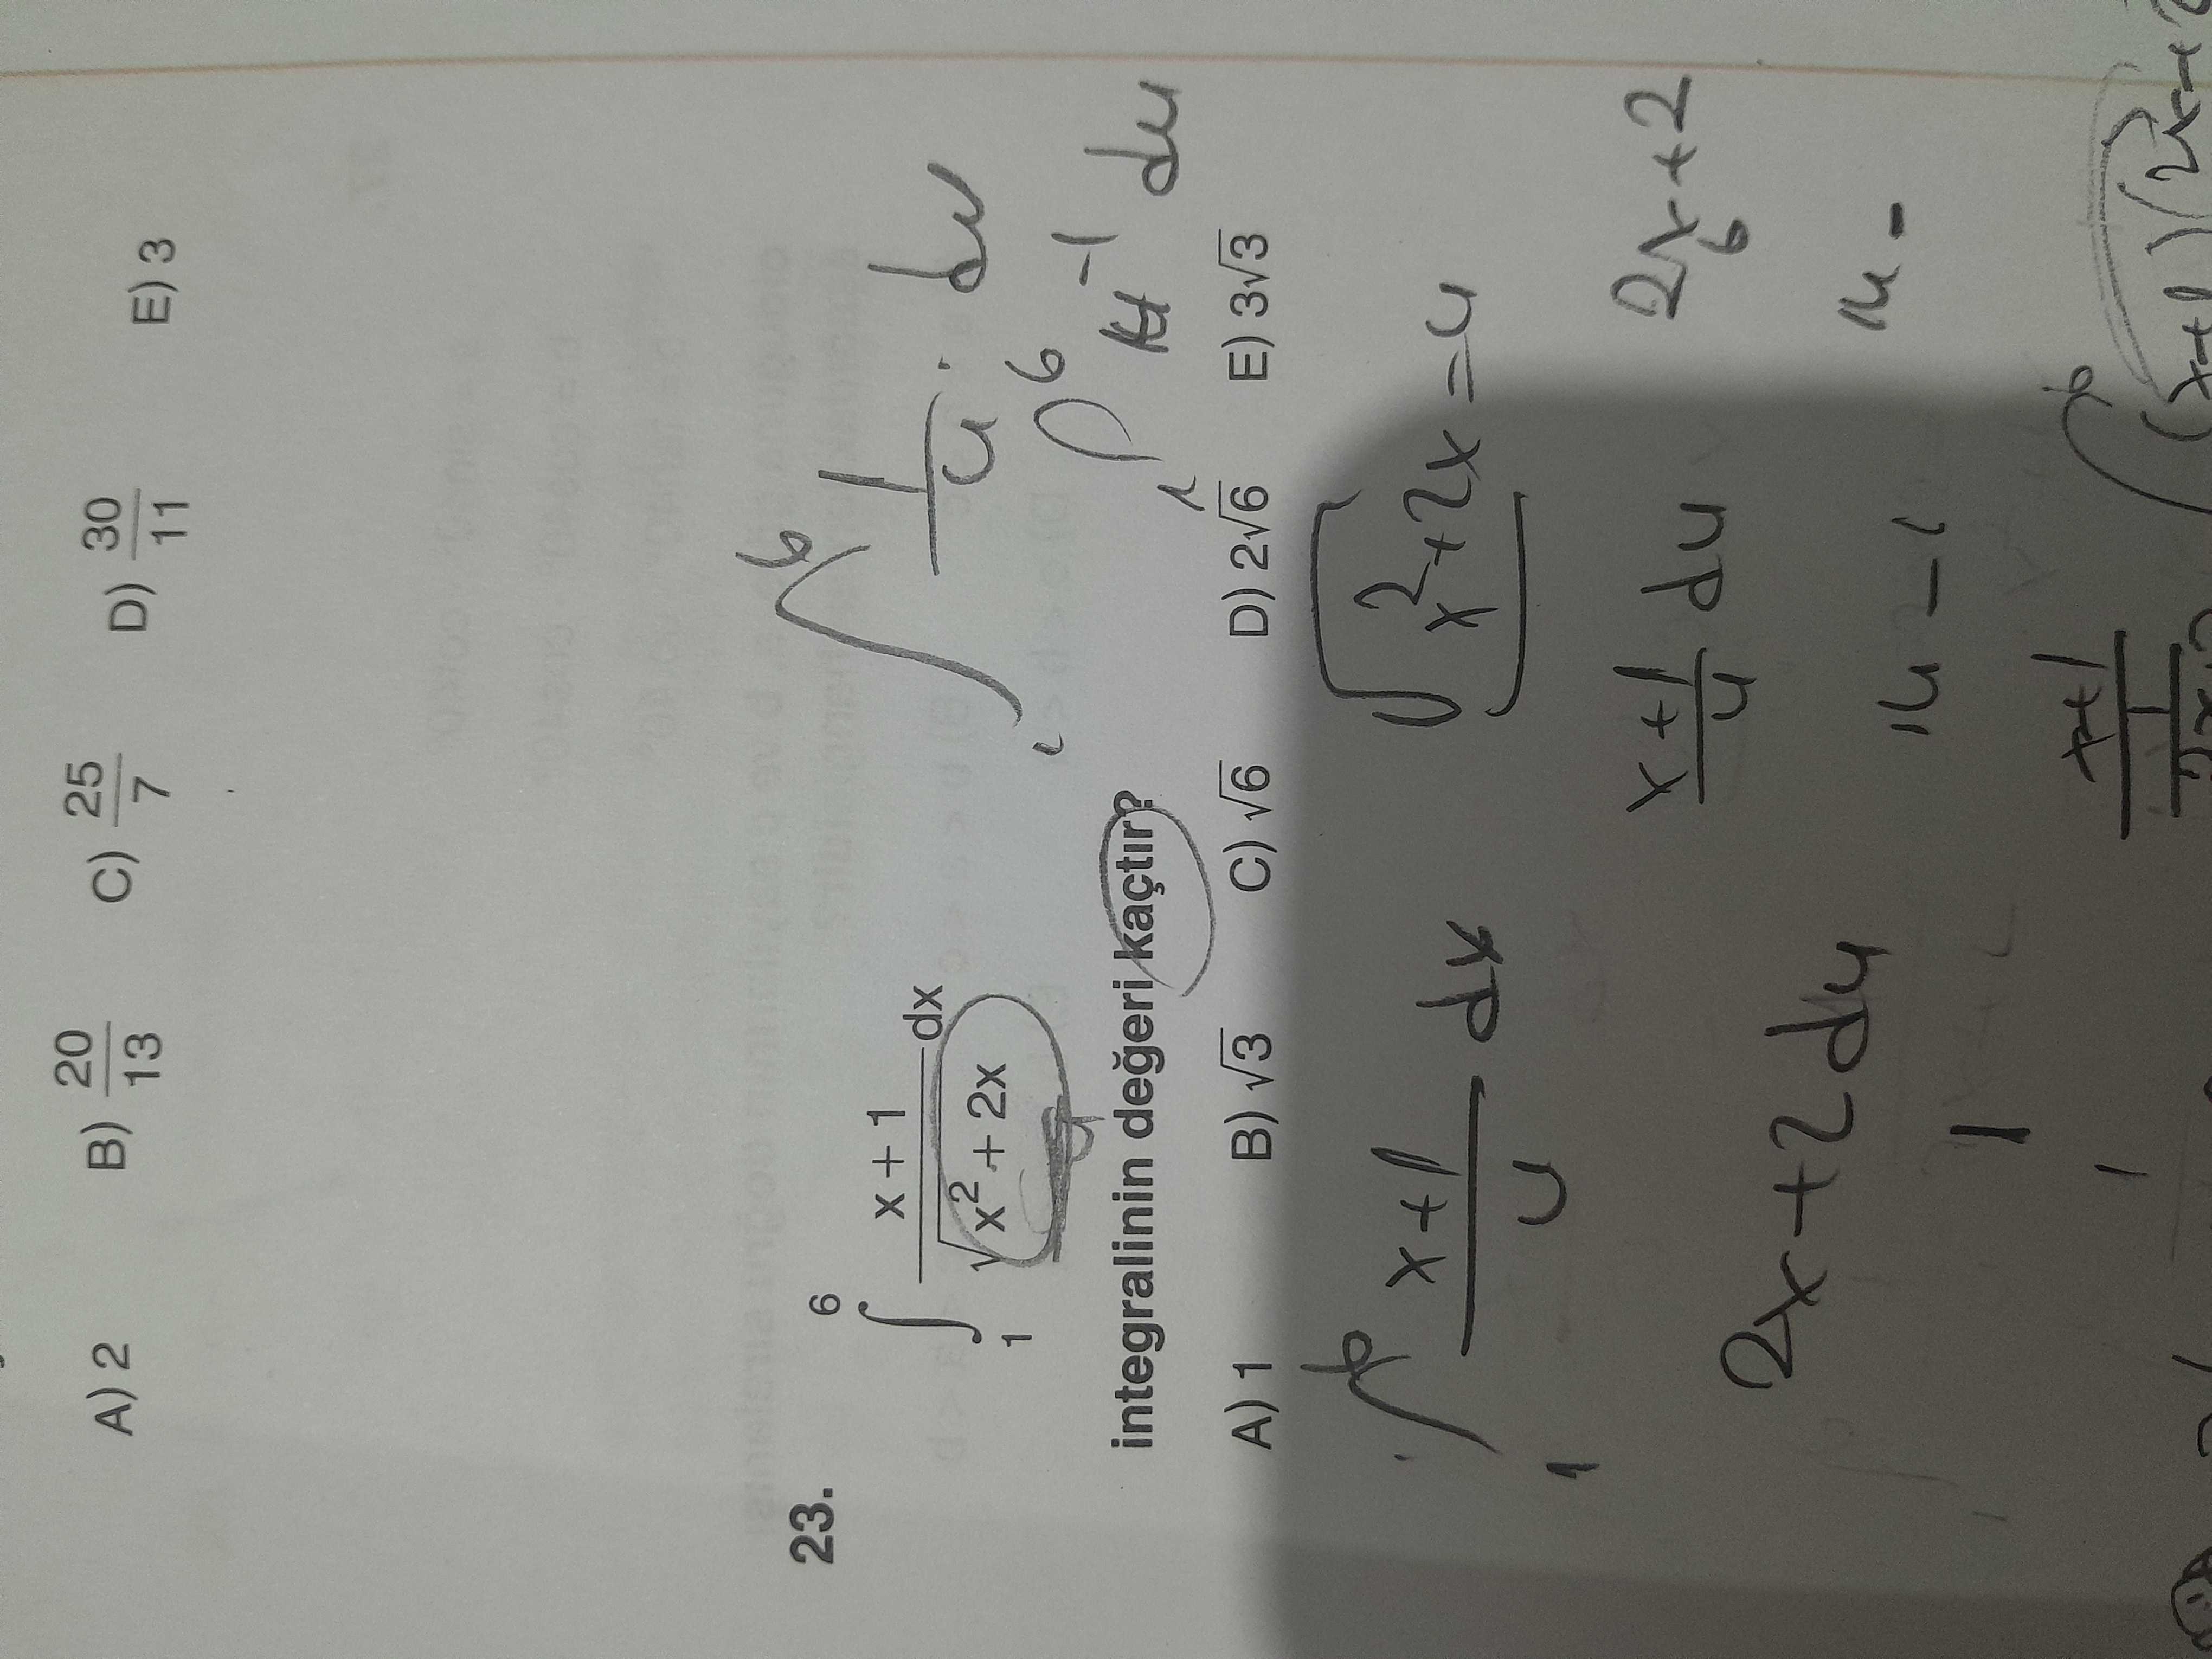 A) 2 B) 20/13 C) 25/7 D) 30/11 E) 3
23. ∫₁⁶ (x + 1)/√(x² + 2x) dx
integralinin değeri kaçtır?
A) 1 B) √3 C) √6 D) 2√6 E) 3√3
∫₁⁶ 1/u · du
∫₁⁶ u⁻¹ du
∫₁⁶ (x+1)/u dx √(x²+2x) = u
2x+2 du (x+1)/u du 2x+2